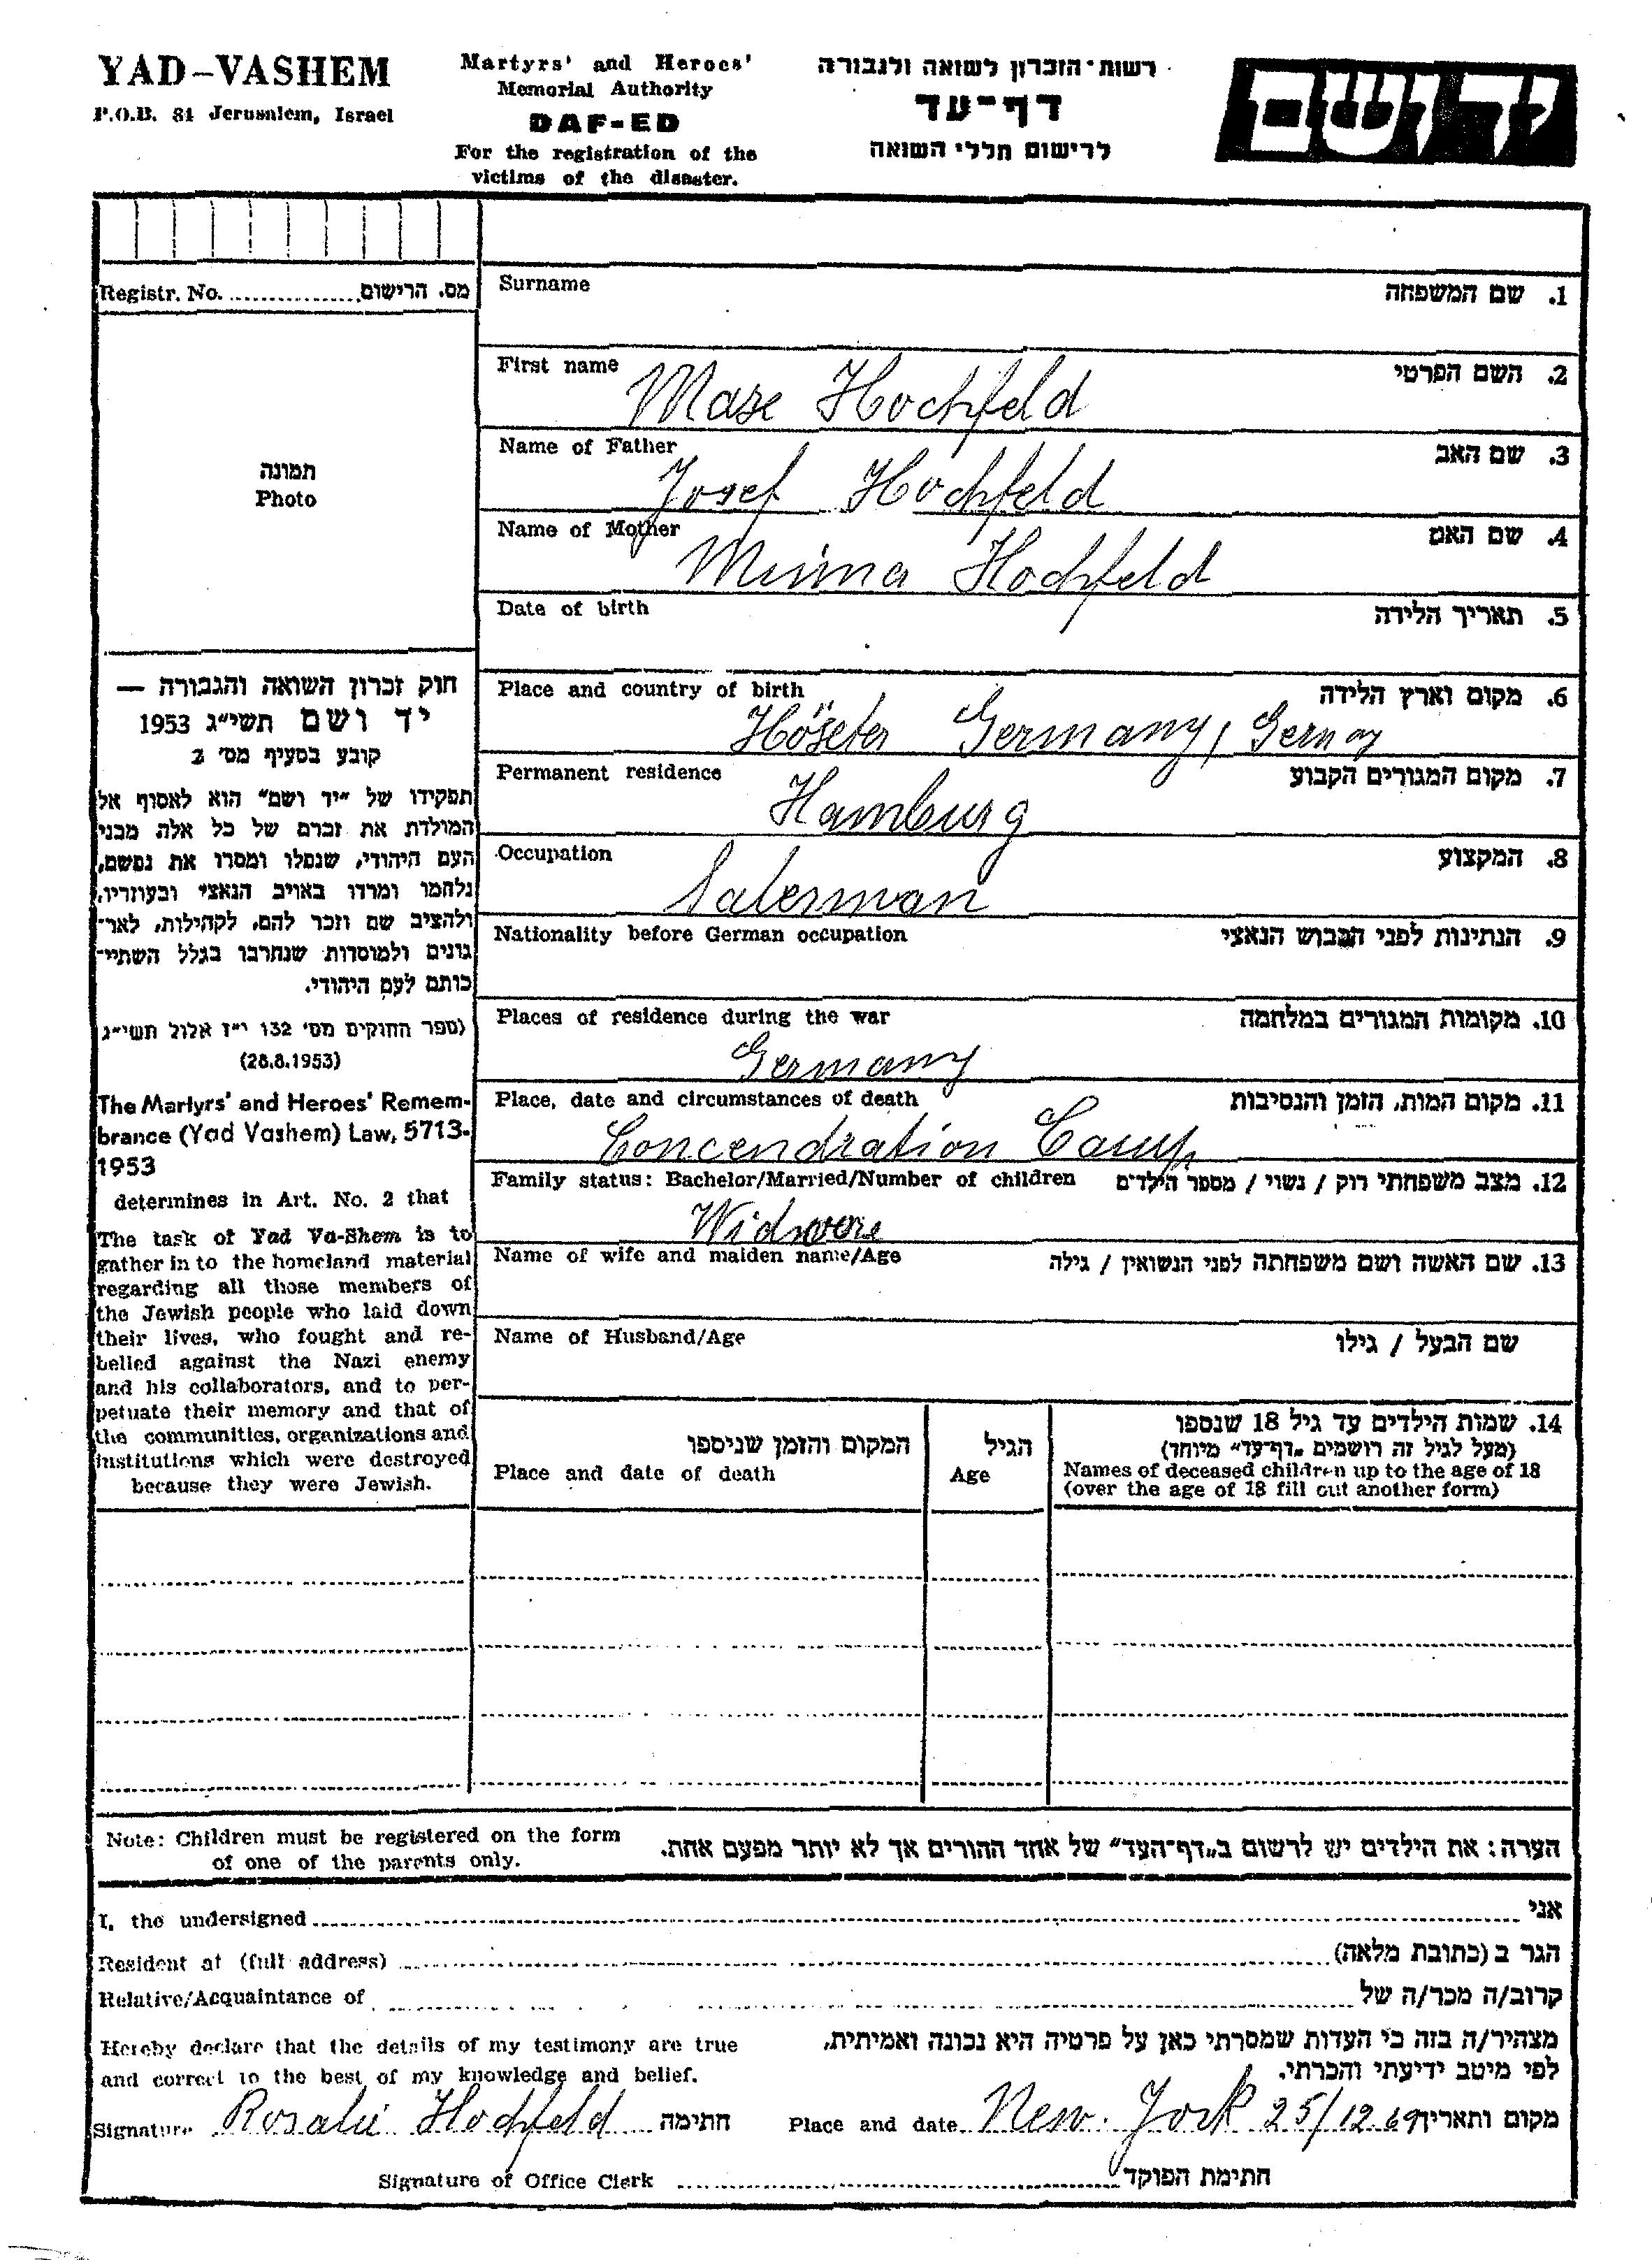 YAD-VASHEM
P.O.B. 84 Jerusalem, Israel
Martyrs' and Heroes'
Memorial Authority
DAF-ED
For the registration of the
victims of the disaster.
רשות־הזכרון לשואה ולגבורה
דף־עד
לרישום חללי השואה
יד ושם
Registr. No. מס. הרישום
תמונה
Photo
חוק זכרון השואה והגבורה —
יד ושם תשי״ג 1953
קובע בסעיף מס׳ 2
תפקידו של ״יד ושם״ הוא לאסוף אל
המולדת את זכרם של כל אלה מבני
העם היהודי, שנפלו ומסרו את נפשם,
נלחמו ומרדו באויב הנאצי ובעוזריו,
ולהציב שם וזכר להם, לקהילות, לאר־
גונים ולמוסדות שנחרבו בגלל השתיי־
כותם לעם היהודי.
(ספר החוקים מס׳ 132 י״ז אלול תשי״ג
(28.8.1953)
The Martyrs' and Heroes' Remem-
brance (Yad Vashem) Law, 5713-
1953
determines in Art. No. 2 that
The task of Yad Va-Shem is to
gather in to the homeland material
regarding all those members of
the Jewish people who laid down
their lives, who fought and re-
belled against the Nazi enemy
and his collaborators, and to per-
petuate their memory and that of
the communities, organizations and
institutions which were destroyed
because they were Jewish.
Surname 1. שם המשפחה
First name 2. השם הפרטי
Hochfeld
Name of Father 3. שם האב
Josef Hochfeld
Name of Mother 4. שם האם
Minna Hochfeld
Date of birth 5. תאריך הלידה
Place and country of birth 6. מקום וארץ הלידה
Germany,
Permanent residence 7. מקום המגורים הקבוע
Hamburg
Occupation 8. המקצוע
Salesman
Nationality before German occupation 9. הנתינות לפני הכבוש הנאצי
Places of residence during the war 10. מקומות המגורים במלחמה
Germany
Place, date and circumstances of death 11. מקום המות, הזמן והנסיבות
Concendration Camp
Family status: Bachelor/Married/Number of children 12. מצב משפחתי רוק / נשוי / מספר הילדים
Name of wife and maiden name/Age 13. שם האשה ושם משפחתה לפני הנשואין / גילה
Name of Husband/Age שם הבעל / גילו
המקום והזמן שניספו
Place and date of death
הגיל
Age
14. שמות הילדים עד גיל 18 שנספו
(מעל לגיל זה רושמים ״דף־עד״ מיוחד)
Names of deceased children up to the age of 18
(over the age of 18 fill out another form)
Note: Children must be registered on the form
of one of the parents only.
הערה: את הילדים יש לרשום ב״דף־העד״ של אחד ההורים אך לא יותר מפעם אחת.
I, the undersigned אני
Resident at (full address) הגר ב (כתובת מלאה)
Relative/Acquaintance of קרוב/ה מכר/ה של
Hereby declare that the details of my testimony are true
and correct to the best of my knowledge and belief.
מצהיר/ה בזה כי העדות שמסרתי כאן על פרטיה היא נכונה ואמיתית,
לפי מיטב ידיעתי והכרתי.
Signature Rosalie Hochfeld חתימה Place and date New. York 25/12.69 מקום ותאריך
Signature of Office Clerk חתימת הפוקד